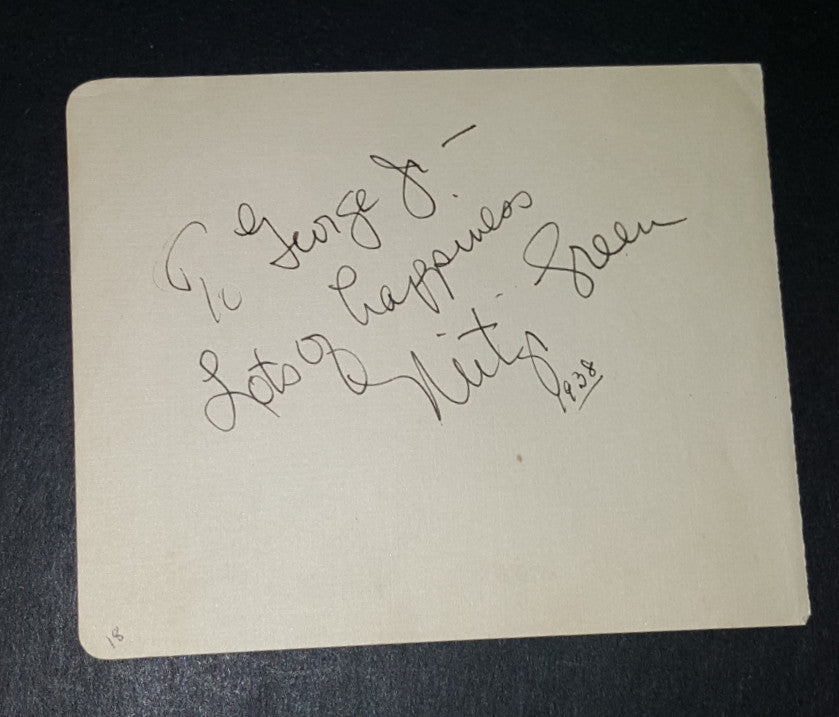 To George Jr. -
Lots of happiness
Mitzi Green
1938
18